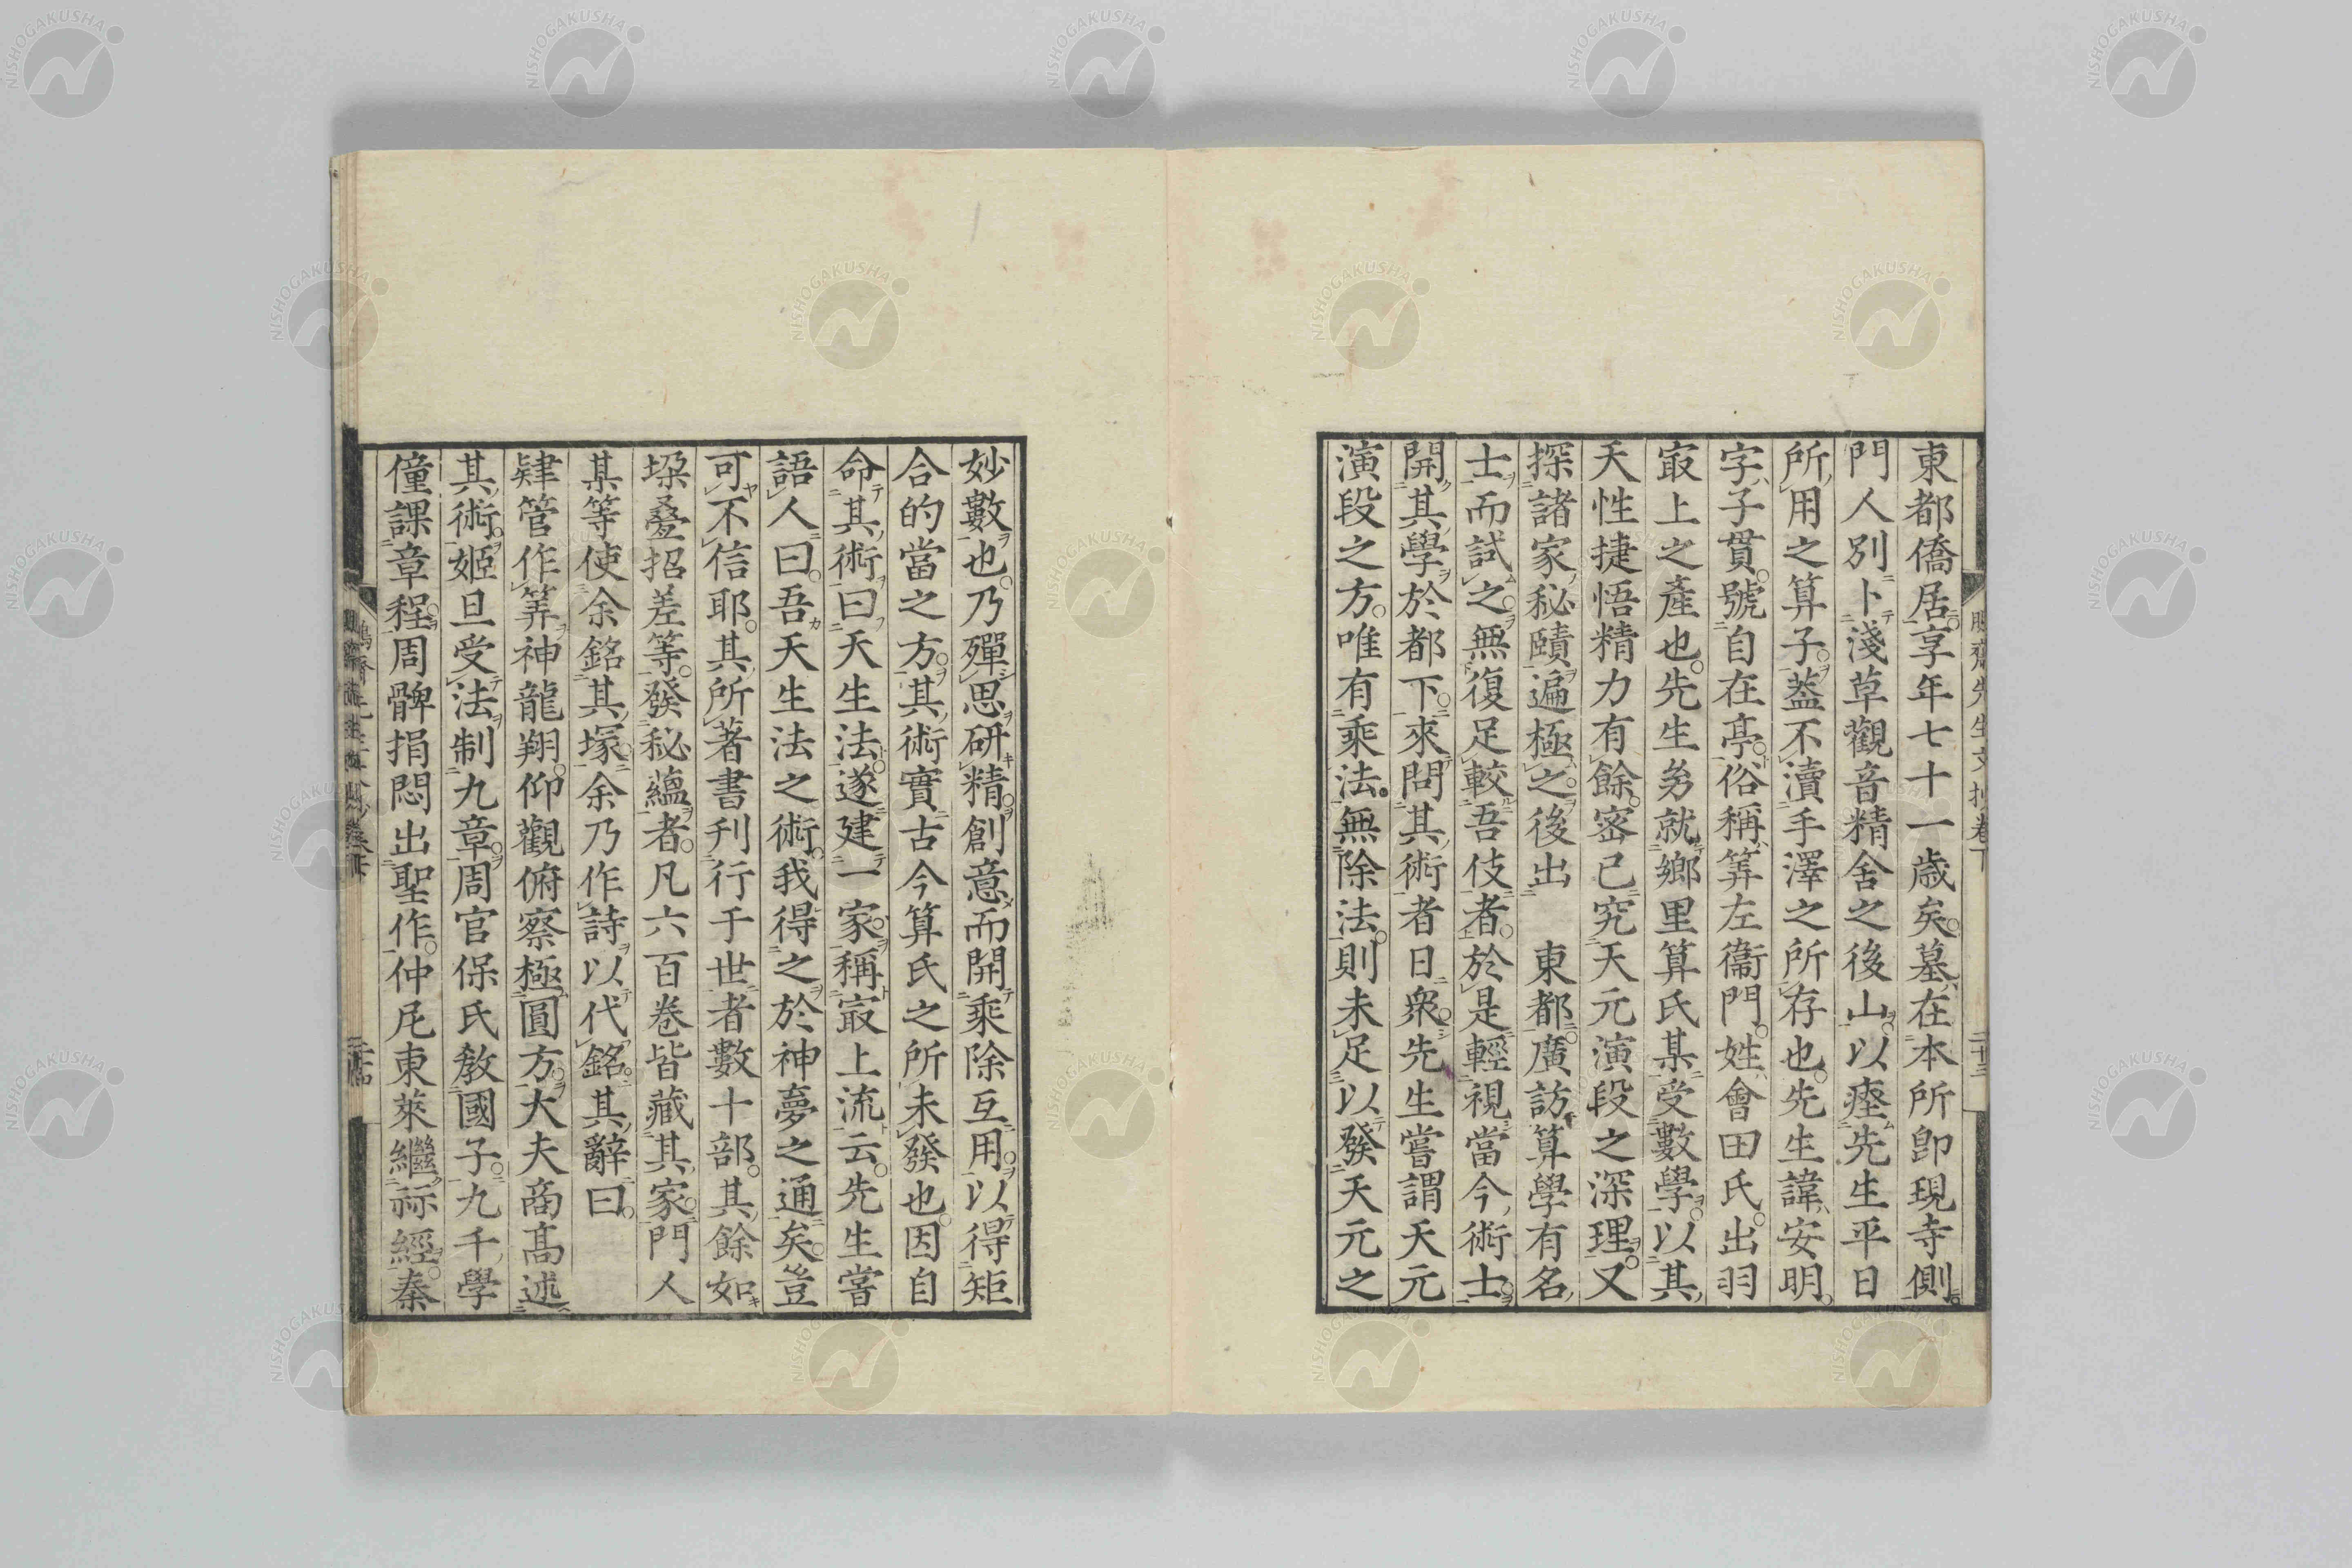 東都僑居享年七十一歳矣墓在本所卽現寺側
門人別卜淺草觀音精舍之後山以瘞先生平日
所用之算子葢不瀆手澤之所存也先生諱安明
字子貫號自在亭俗稱筭左衞門姓會田氏出羽
㝡上之產也先生㓜就鄉里算氏某受數學以其
天性捷悟精力有餘宻已究天元演段之深理又
探諸家秘賾遍極之後出　東都廣訪算學有名
士而試之無復足較吾伎者於是輕視當今術士
開其學於都下來問其術者日衆先生嘗謂天元
演段之方唯有乘法無除法則未足以發天元之
妙數也乃殫思研精創意而開乘除互用以得矩
合的當之方其術實古今算氏之所未發也因自
命其術曰天生法遂建一家稱㝡上流云先生嘗
語人曰吾天生法之術我得之於神夢之通矣豈
可不信耶其所著書刋行于世者數十部其餘如
垛疊招差等發秘蘊者凡六百卷皆藏其家門人
某等使余銘其塚余乃作詩以代銘其辭曰
肄管作筭神龍翔仰觀俯察極圓方大夫啇髙述
其術姬旦受法制九章周官保氏敎國子九千學
僮課章程周髀捐悶出聖作仲尼東萊繼祘經秦
鵬齋先生文抄卷下
二十三